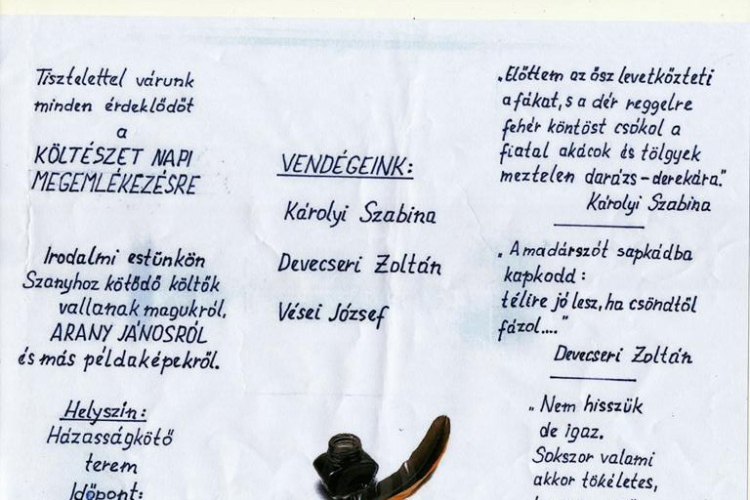 Tisztelettel várunk
minden érdeklődőt
a
KÖLTÉSZET NAPI
MEGEMLÉKEZÉSRE
Irodalmi estünkön
Szanyhoz kötődő költők
vallanak magukról,
ARANY JÁNOSRÓL
és más példaképekről.
Helyszín:
Házasságkötő
terem
Időpont:
VENDÉGEINK:
Károlyi Szabina
Devecseri Zoltán
Vései József
„Előttem az ősz levetkőzteti
a fákat, s a dér reggelre
fehér köntöst csókol a
fiatal akácok és tölgyek
meztelen darázs-derekára."
Károlyi Szabina
„A madárszót sapkádba
kapkodd:
télire jó lesz, ha csöndtől
fázol...."
Devecseri Zoltán
„Nem hisszük
de igaz.
Sokszor valami
akkor tökéletes,